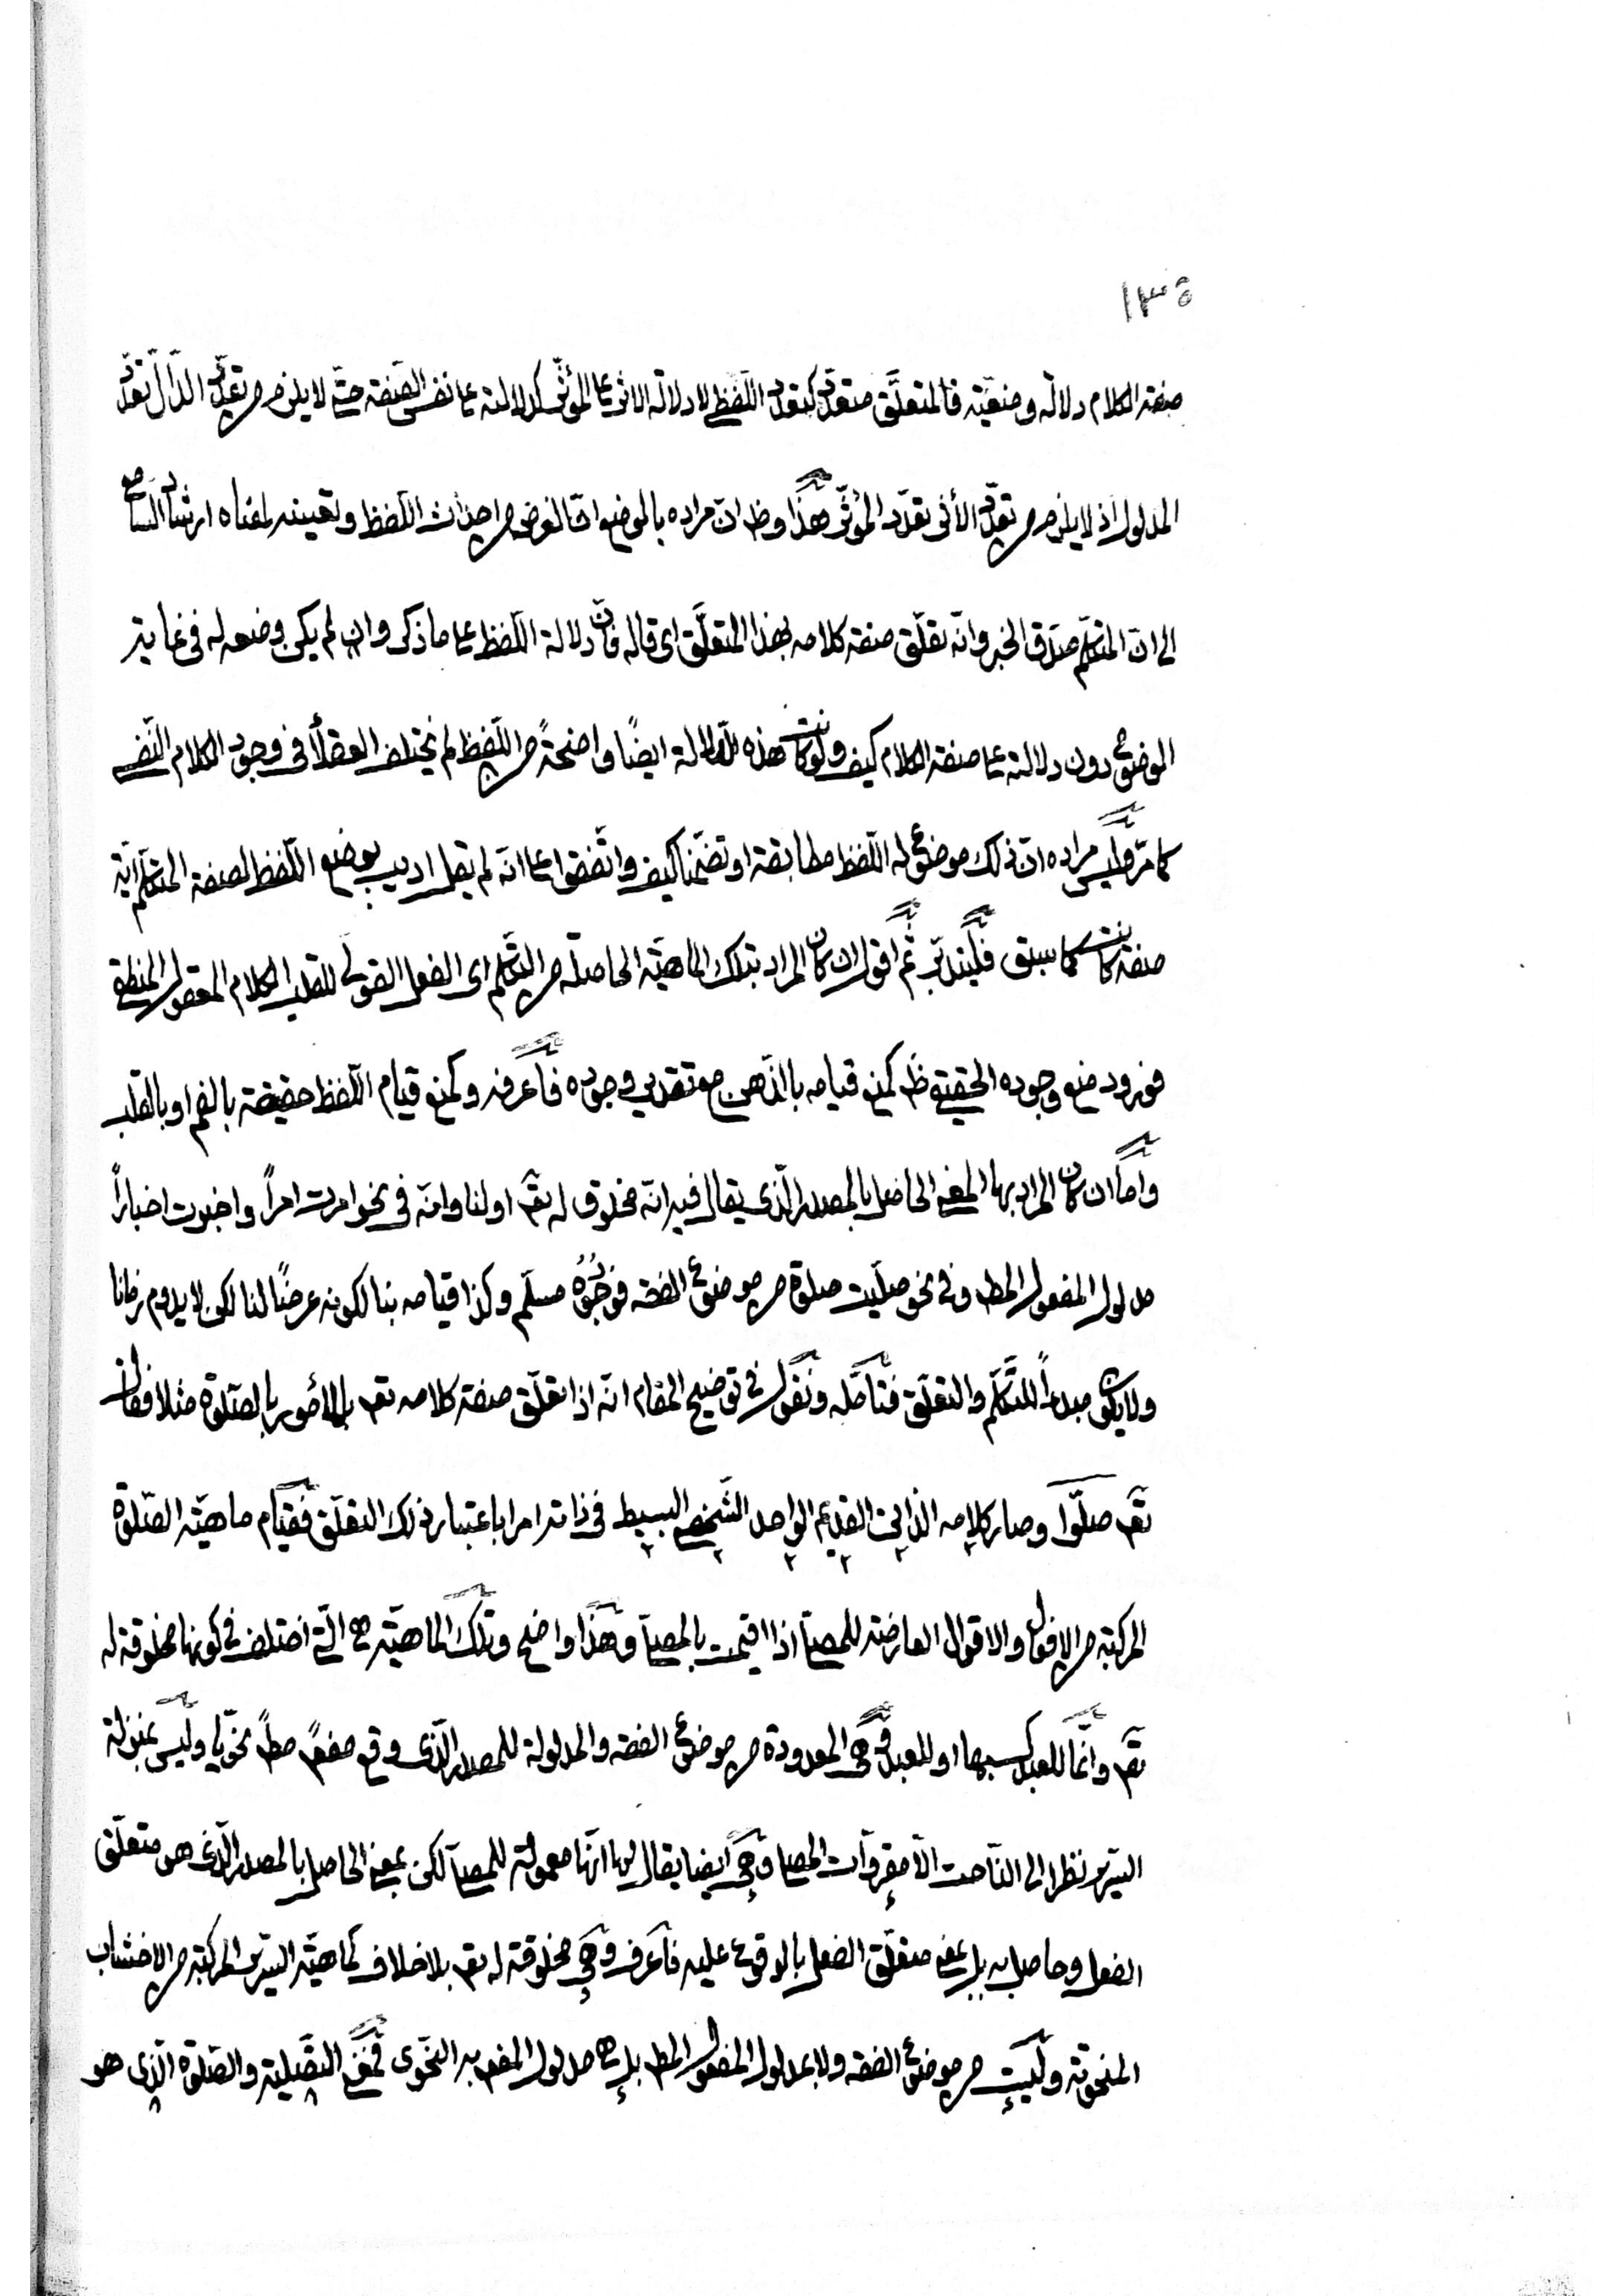 ١٣٥
صفة الكلام دلالة وضعيّة فالمتعلّق متعدّد كتعدّد اللّفظ لا دلالة الاثر على المؤثّر كدلالته على نفس الصّفة حتّى لا يلزم من تعدّد الدّالّ تعدّد
المدلول اذ لا يلزم من تعدّد الأثر تعدّد المؤثّر هذا وظ ان مراده بالموضوع انّ الغرض من احداث اللّفظ وتعيينه لمعناه ارشاد السّامع
الى انّ المتكلّم صدق الخبر وانّه تعلّق صفة كلامه بهذا المتعلّق اى قاله فانّ دلالة اللّفظ على ما ذكر وان لم يكن وضعه له فى غاية
الوضوح دون دلالته على صفة الكلام كيف ولو كانت هذه الدّلالة ايضًا واضحةً من اللّفظ لم يختلف العقلاء فى وجود الكلام النّفسى
كما مرّ وليس مراده انّ ذلك موضوع له اللّفظ مطابقة او تضمّنا كيف واتّفقوا على انّه لم يقل اديب بوضع اللّفظ لصفة المتكلّم ايّة
صفة كانت كما سبق فليتدبّر ثمّ اقول ان كان المراد بتلك الماهيّة الحاصلة من التّكلّم اى الفعل القولى للقلب الكلام المعقول المنطقى
فورود منع وجوده الحقيقى ظ كمنع قيامه بالذّهن مع تقدير وجوده فاعرفه وكمنع قيام اللّفظ حقيقة بالفم او بالقلب
وامّا ان كان المراد بها المعنى الحاصل بالمصدر الّذى يقال فيه انّه مخلوق له تعم او لنا وانّه فى نحو امرت امراً واخبرت اخباراً
مدلول المفعول المط وفى نحو صلّيت صلوة من موضوع الفقه فوجوده مسلّم وكذا قيامه بنا لكونه عرضًا لنا لكن لا يدوم زمانا
ولا يكون مبدأً للتّكلّم والتعلّق فتأمّله ونقول فى توضيح المقام انّه اذا تعلّق صفة كلامه تعم بالأمور بالصّلوة مثلا فقال
تعم صلّوا وصار كلامه الذاتىّ القديم الواحد الشّخصى البسيط فى ذاته امرا باعتبار ذلك التعلّق فقيام ماهيّة الصّلوة
المركبة من الافعال والاقوال العارضة للمصلّى اذا اقيمت بالمصلّى وهذا واضح وتلك الماهيّة هى الّتى اختلف فى كونها مخلوقة له
تعم وانّما للعبد كسبها او للعبد وهى المعدودة من موضوع الفقه والمدلولة للمصدر الّذى وقع مفعولًا مطلقاً نحويّا وليس بمنزلة
السّرير نظرا الى النّاحت الّا مقروّات المصلّى وهى ايضا يقال لها انّها معمولة للمصلّى لكن بمعنى الحاصل بالمصدر الّذى هو متعلّق
الفعل وحاصل به بل بمعنى متعلّق الفعل بالوقوع عليه فاعرف وهى مخلوقة له تعم بلا خلاف كماهيّة السّرير المركبة من الاخشاب
المنحوتة وليست من موضوع الفقه ولا بمدلول المفعول المط بل هى مدلول المفعول به النّحوى والصّلوة الّذى هو